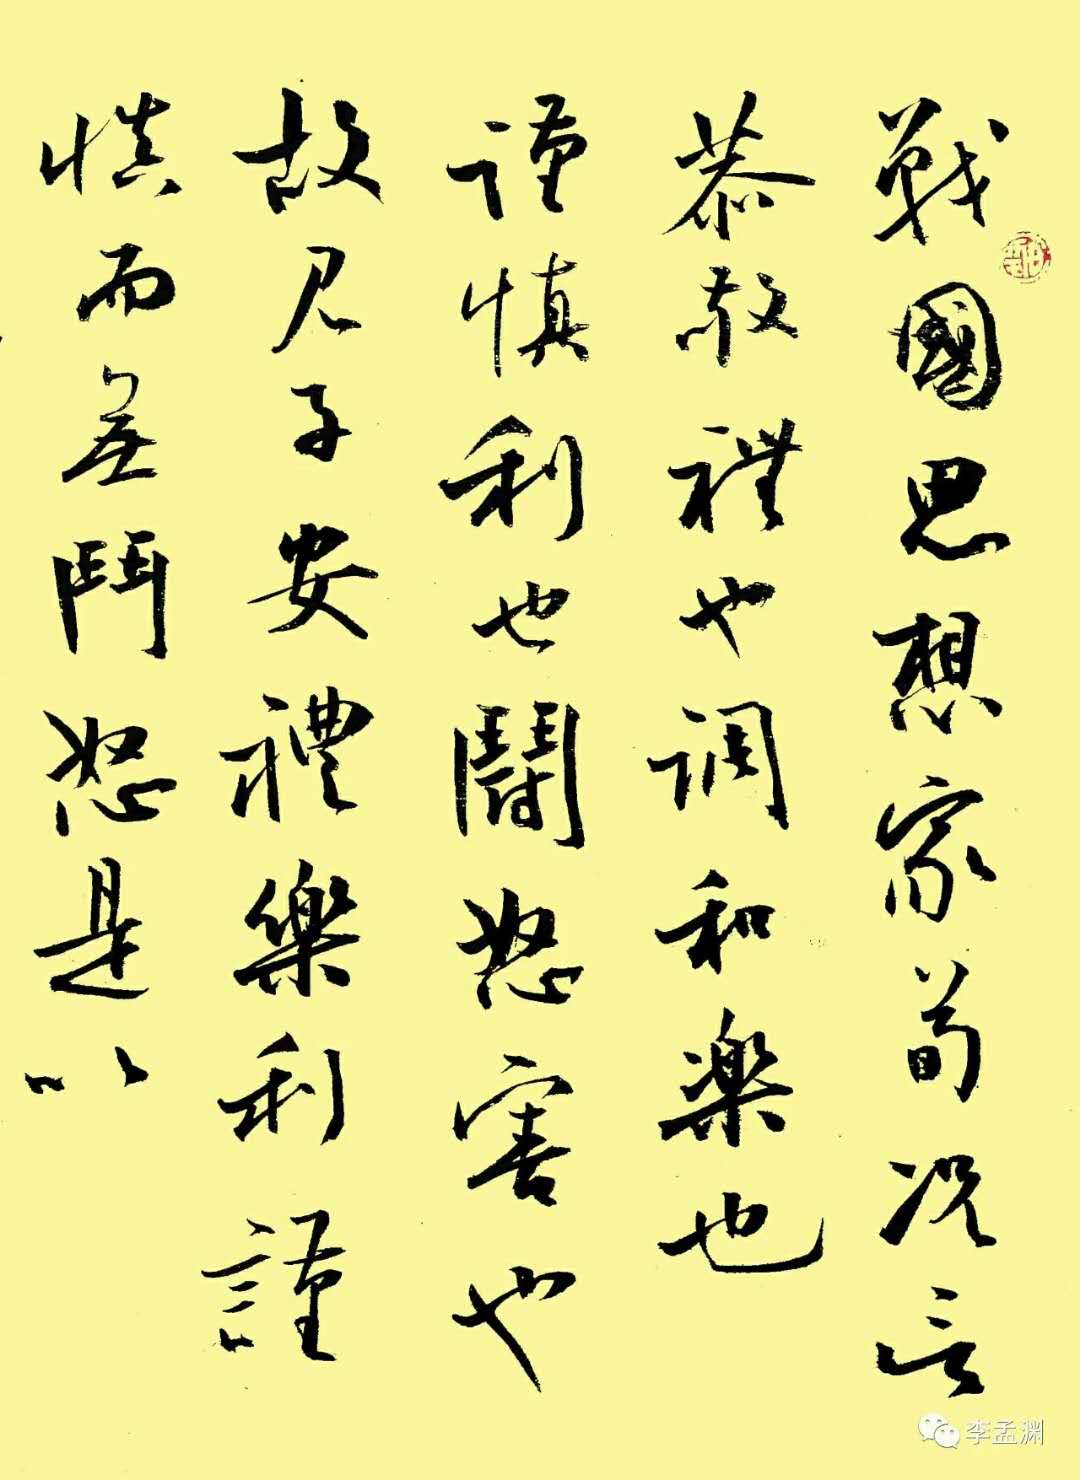 戰國思想家荀况言
恭敬禮也调和楽也
谨慎利也鬪怒害也
故君子安禮樂利謹
慎而無鬥怒是以
李孟渊